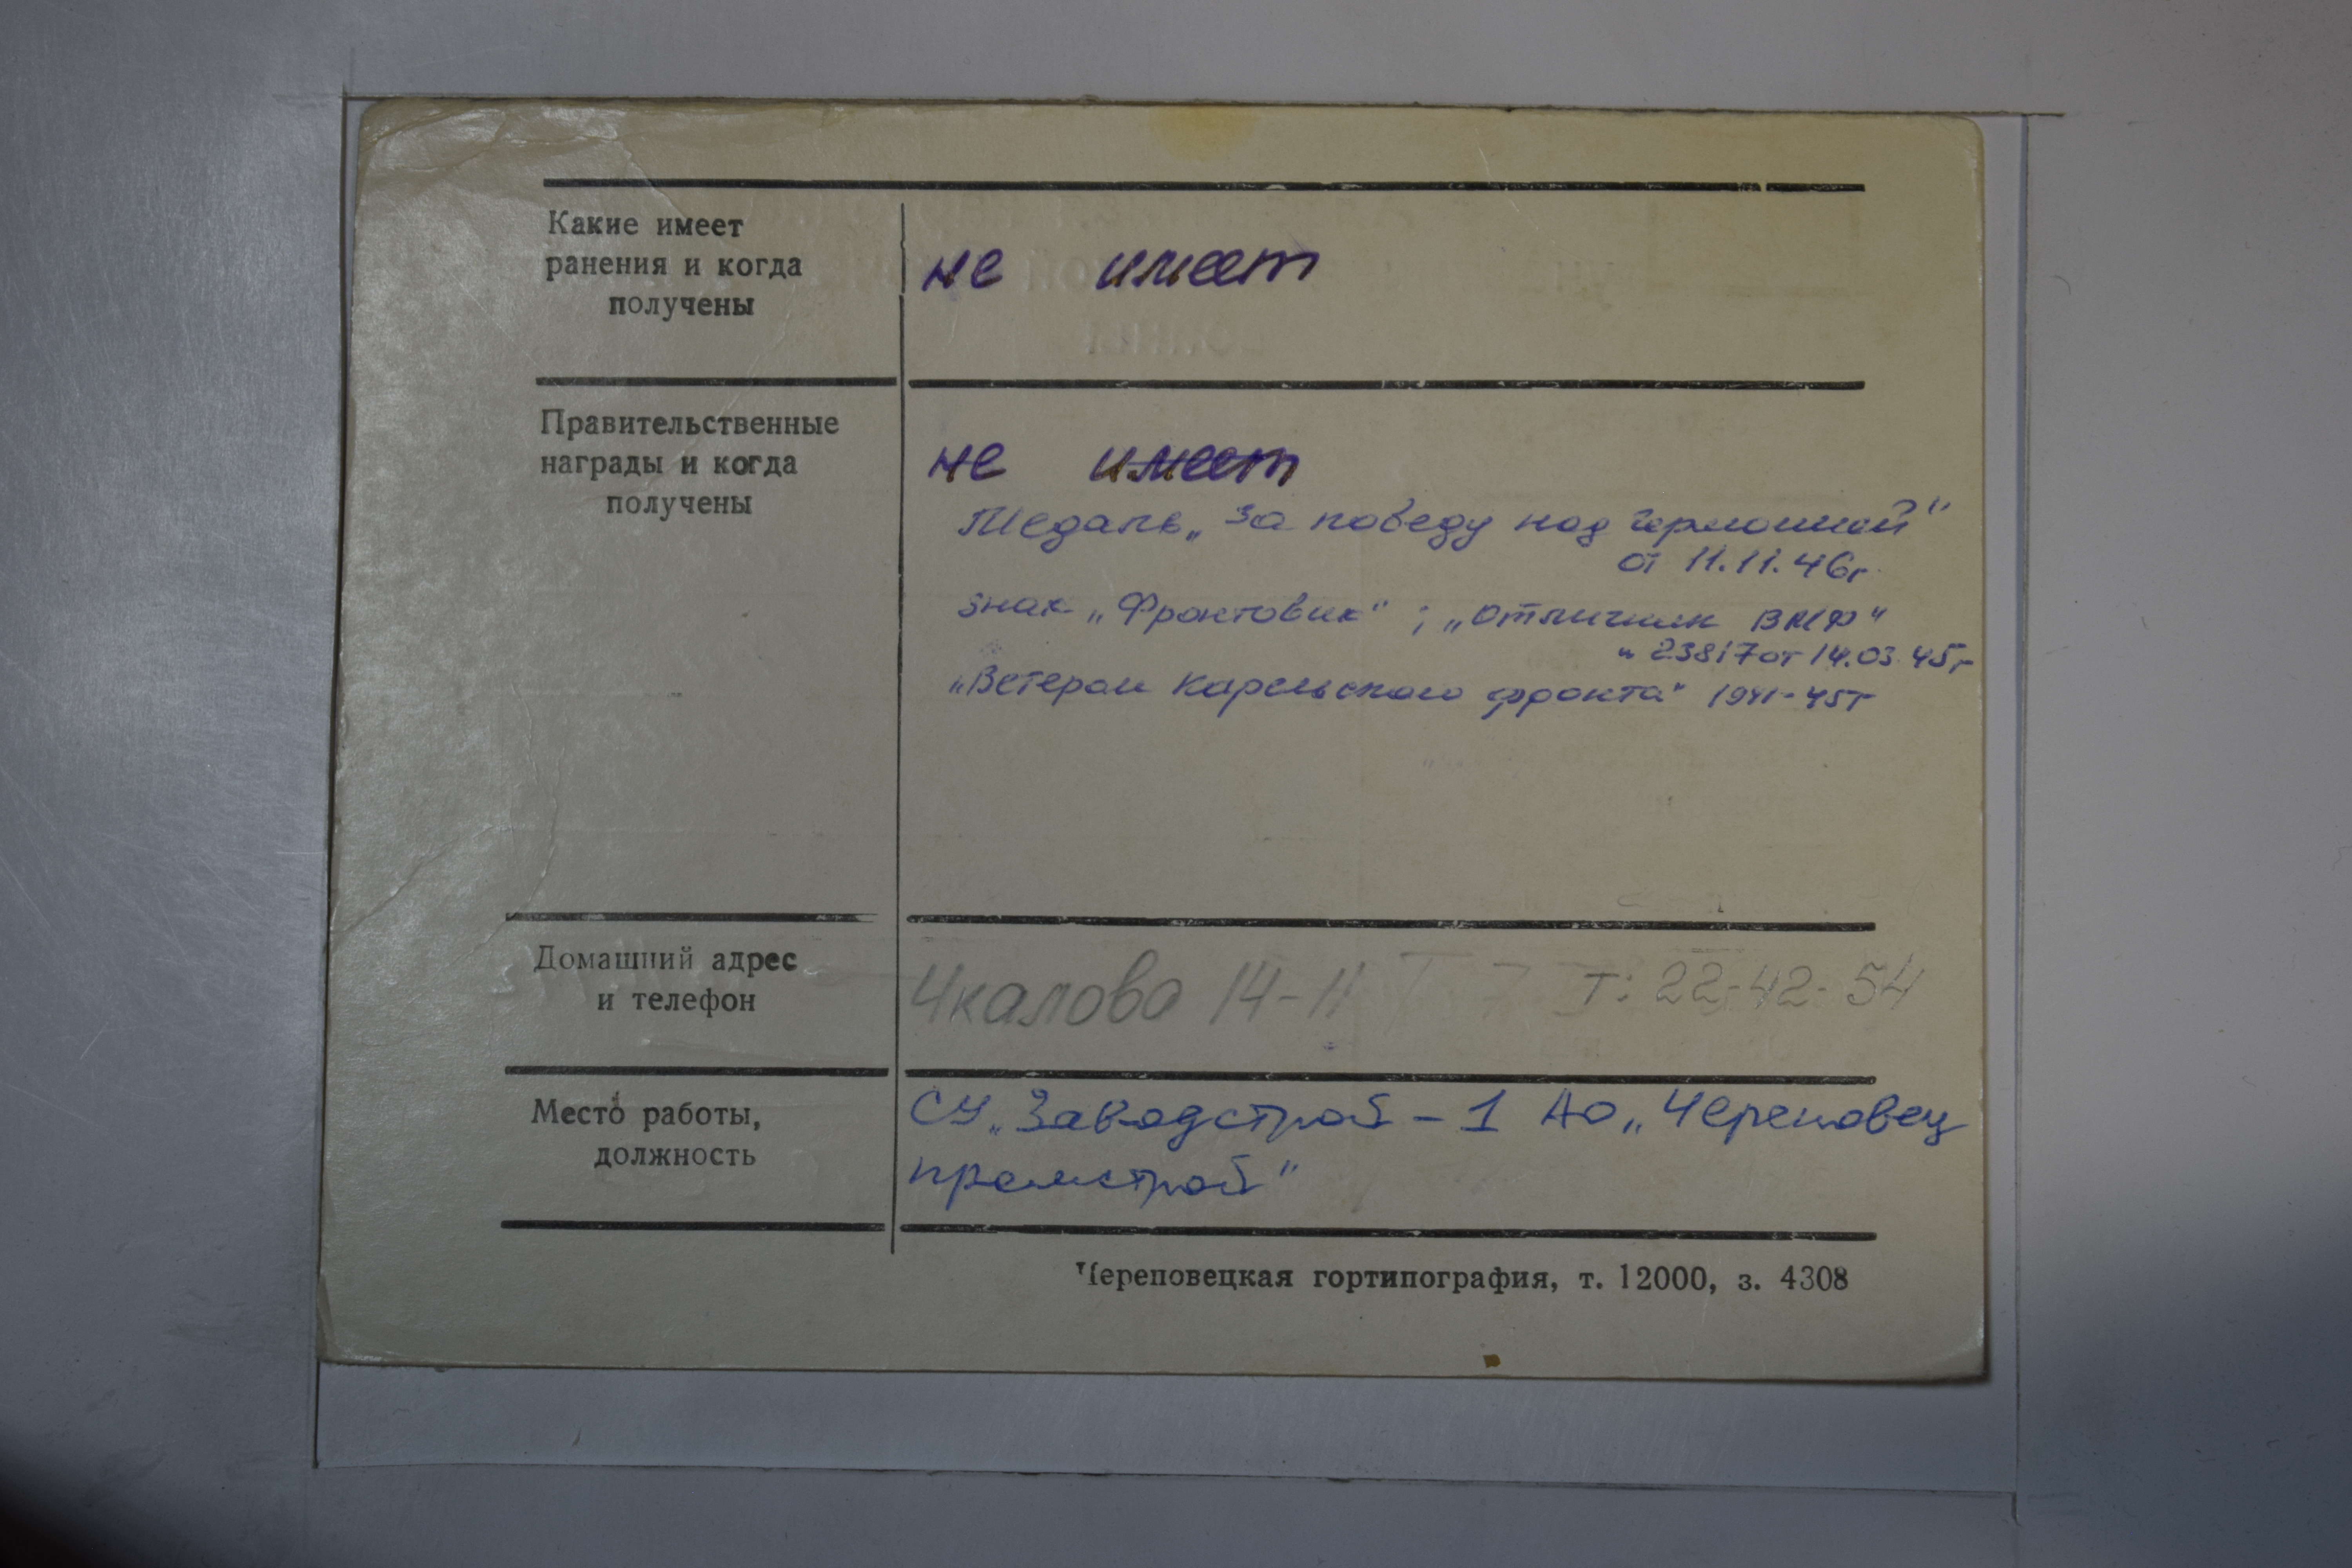 Какие имеет
ранения и когда
получены
не имеет
Правительственные
награды и когда
получены
не имеет
Медаль „За победу над Германией"
от 11.11.46г
знак „Фронтовик" ; „Отличник ВМФ"
н 23817 от 14.03.45г
„Ветеран Карельского фронта" 1941-45г
Домашний адрес
и телефон
Чкалова 14-11 т: 22-42-54
Место работы,
должность
СУ „Заводстрой-1 АО „Череповец
промстрой"
Череповецкая гортипография, т. 12000, з. 4308